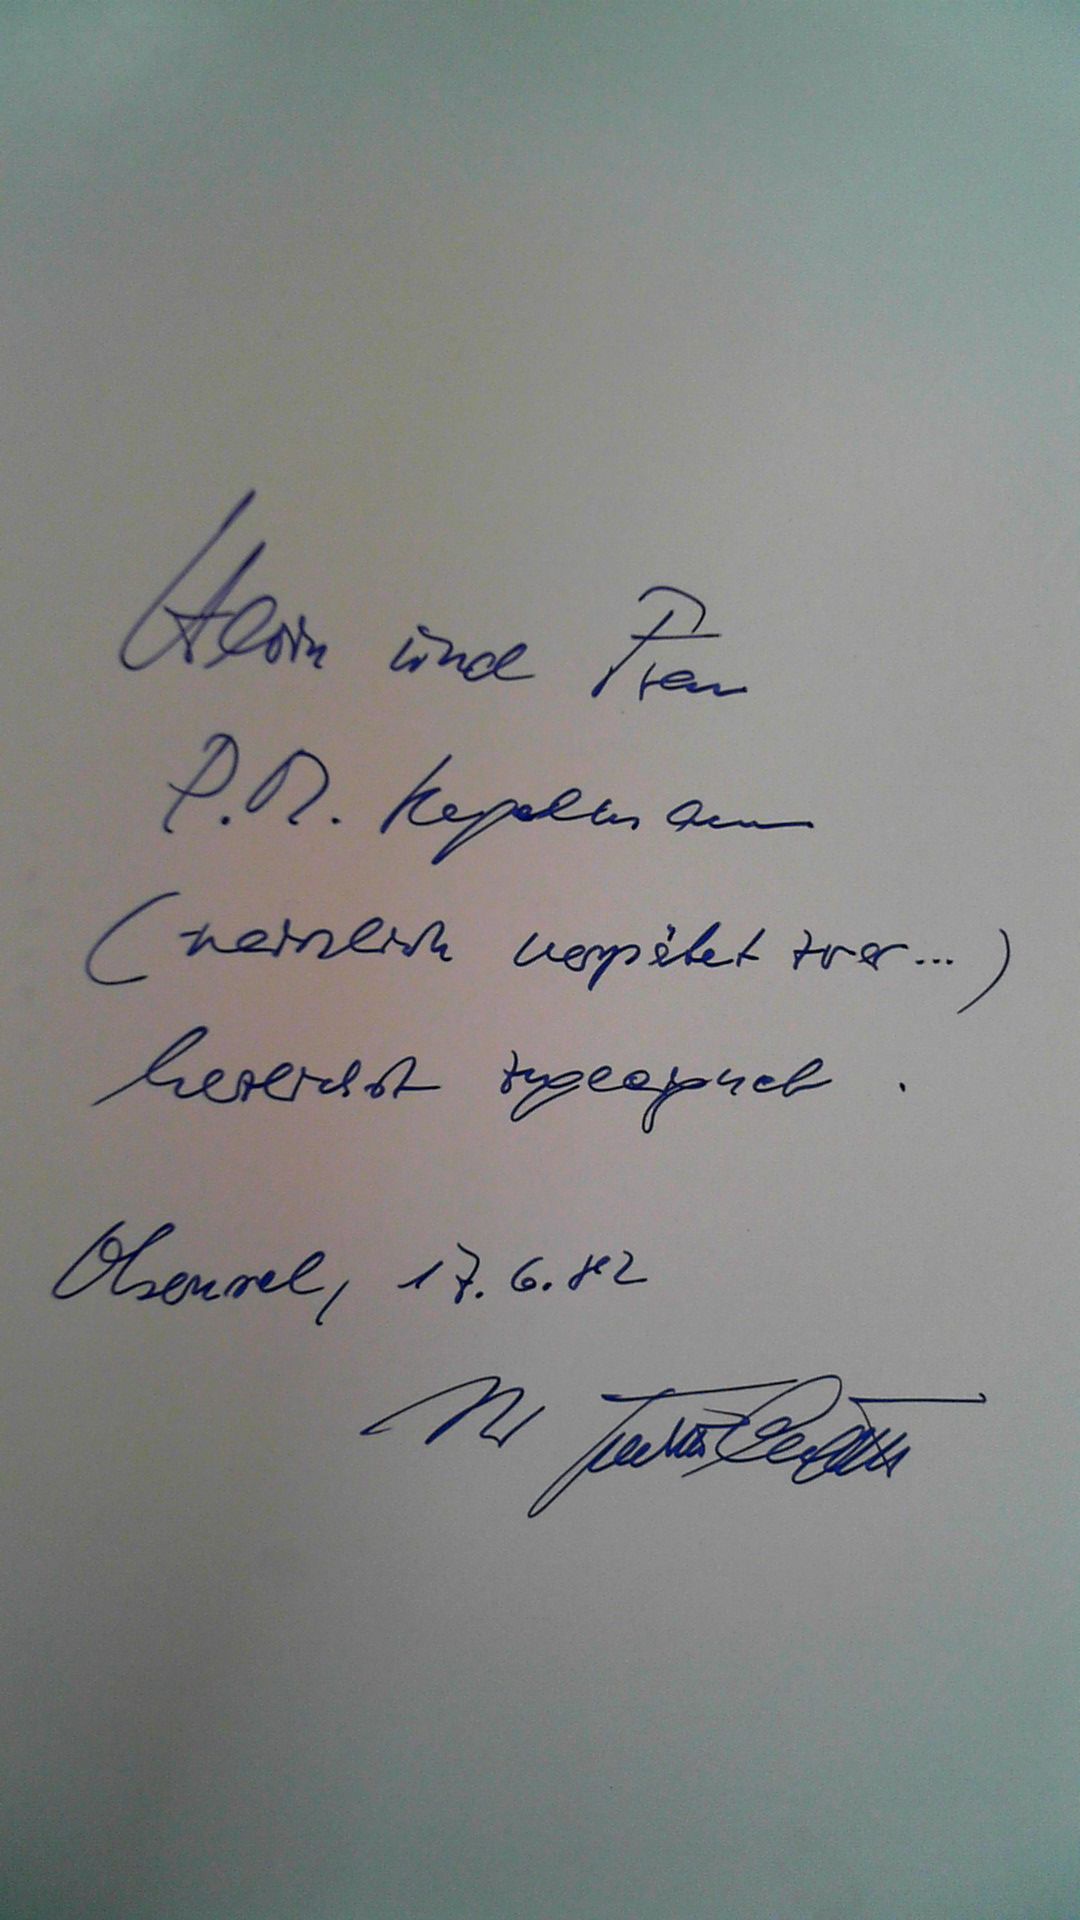 Herrn und Frau
P. M. Kegelmann
(reichlich verspätet zwar...)
herzlichst zugeeignet.
17.6.82